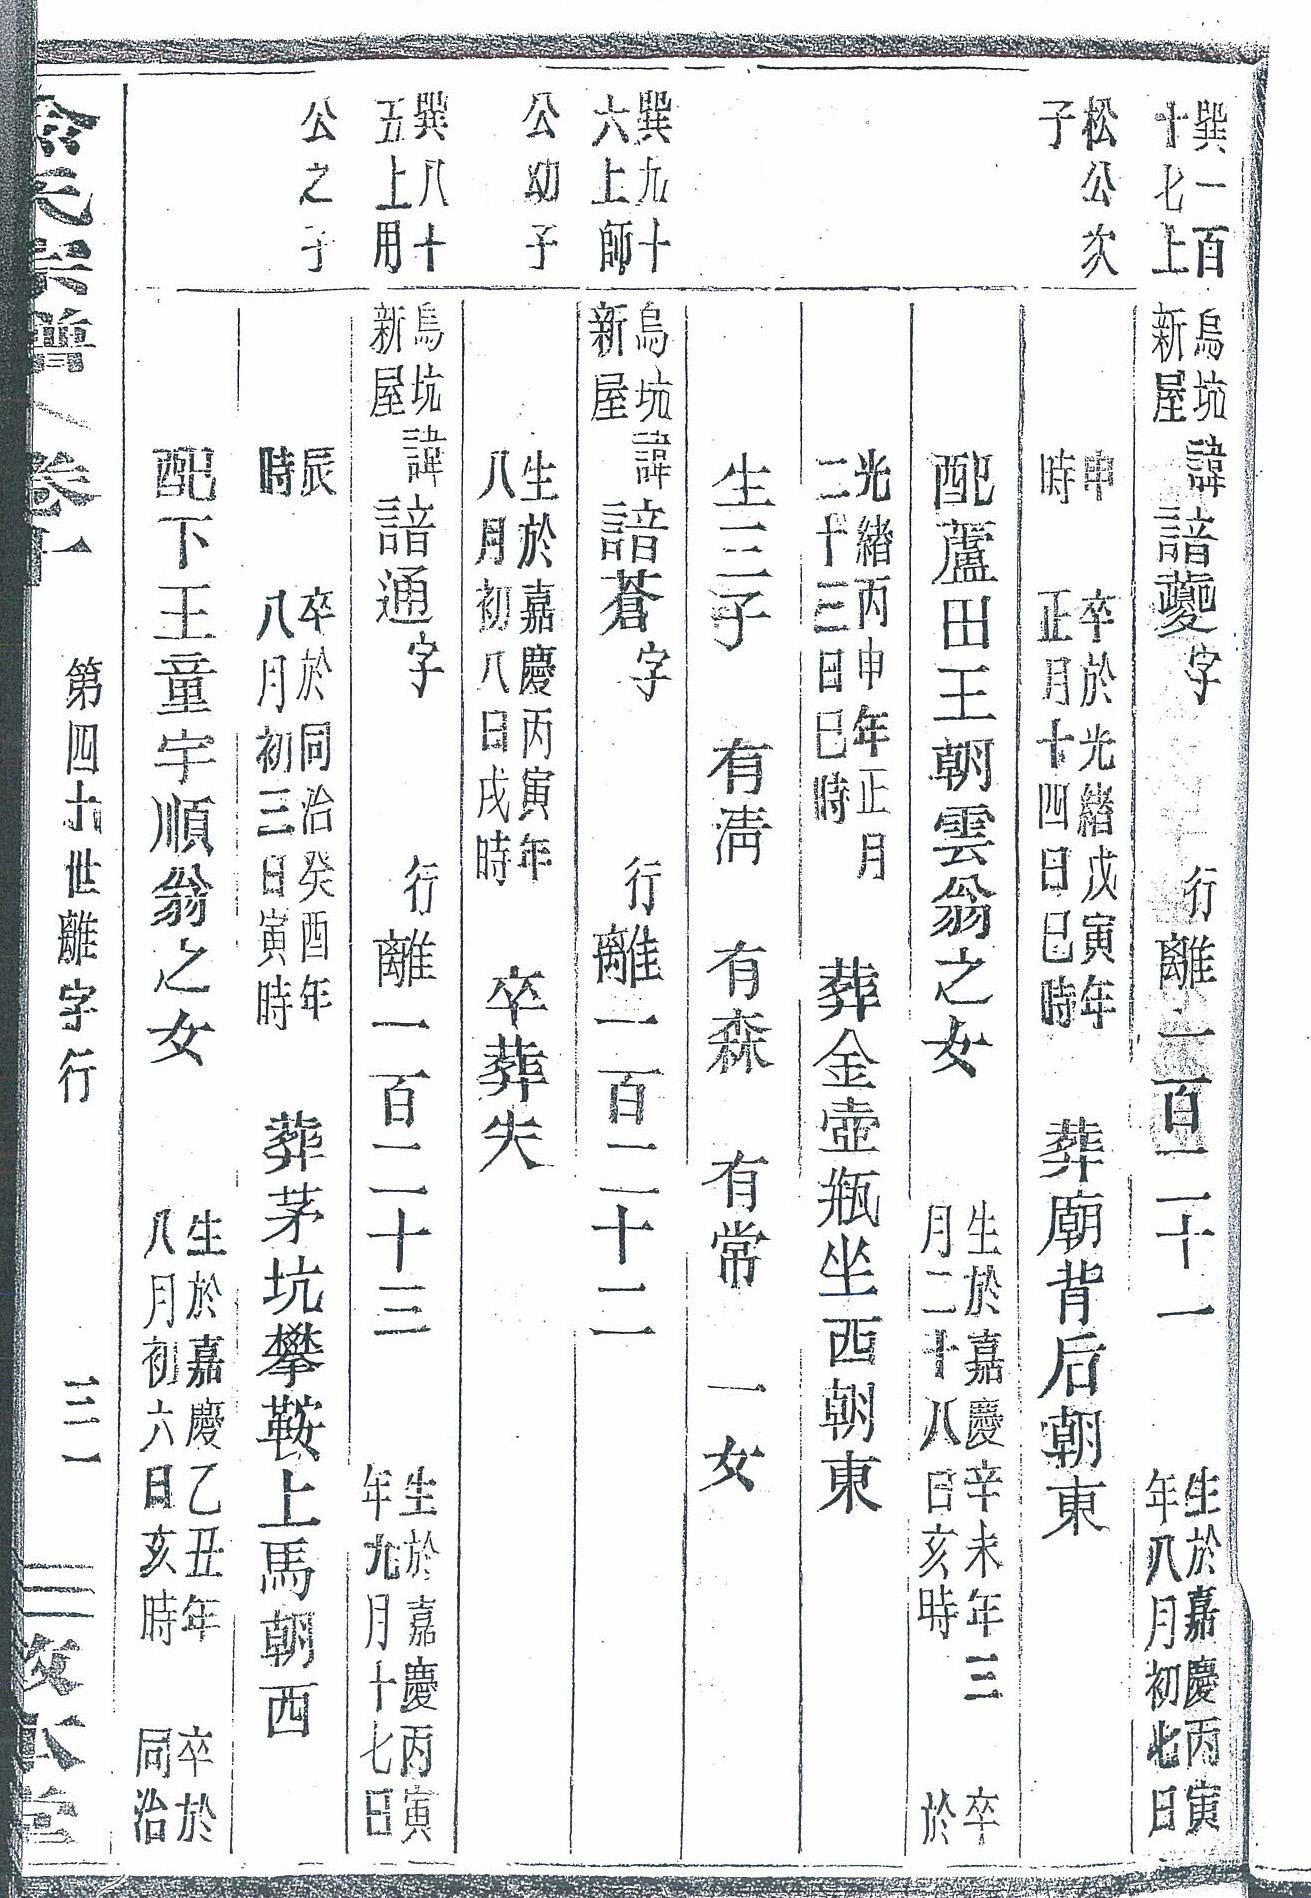 巽一百
十七上
松公次
子
烏坑
新屋
諱諳夔字 行離一百二十一
生於嘉慶丙寅
年八月初七日
申
時
卒於光緒戊寅年
正月十四日巳時
葬廟背后朝東
配蘆田王朝雲翁之女
生於嘉慶辛未年三
月二十八日亥時
卒
於
光緒丙申年正月
二十三日巳時
葬金壺瓶坐西朝東
生三子 有淸 有森 有常 一女
巽九十
六上師
公幼子
烏坑
新屋
諱諳蒼字 行離一百二十二
生於嘉慶丙寅年
八月初八日戌時
卒葬失
巽八十
五上用
公之子
烏坑
新屋
諱諳通字 行離一百二十三
生於嘉慶丙寅
年九月十七日
辰
時
卒於同治癸酉年
八月初三日寅時
葬茅坑攀鞍上馬朝西
配下王童宇順翁之女
生於嘉慶乙丑年
八月初六日亥時
卒於
同治
氏宗譜 卷十一
第四十世離字行
三一
三
本堂